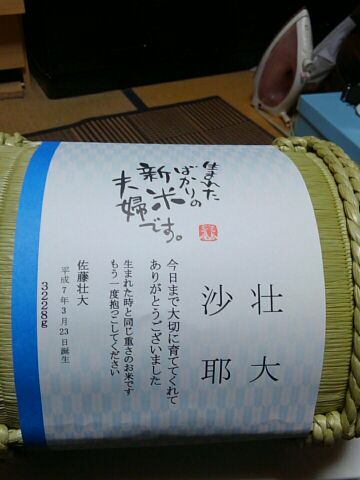 生まれた
ばかりの
新米
夫婦です。
壮大
沙耶
今日まで大切に育ててくれて
ありがとうございました
生まれた時と同じ重さのお米です
もう一度抱っこしてください
佐藤壮大
平成7年3月23日誕生
3228g